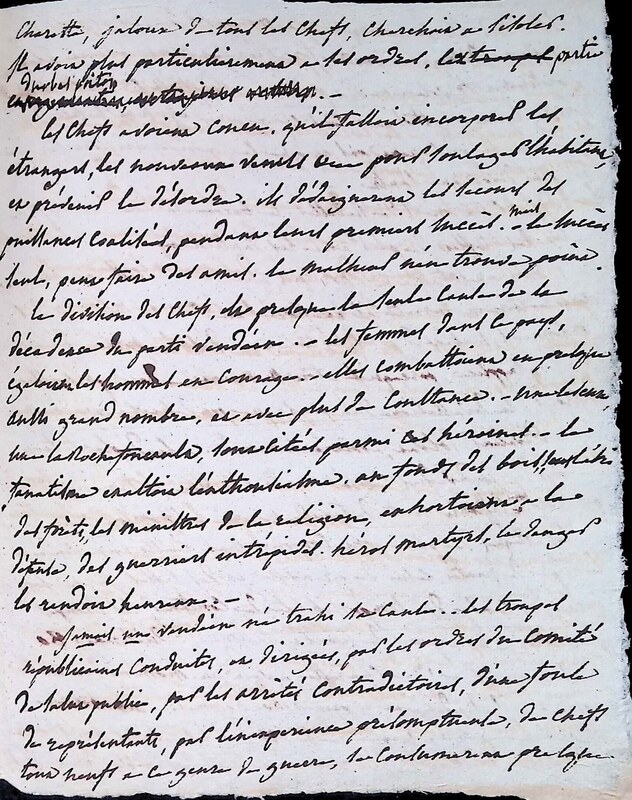 Charette, jaloux de tous les Chefs, Cherchoit a s'isoler.
Il avoit plus particulierement a ses ordres, les troupes partie
du bas poitou
Les Chefs avoient concu, qu'il falloit incorporer les
étrangers, les nouveaux venus pour soulager l'habitant,
et prévenir le désordre. ils dédaignerent les secours des
puissances Coalisées, pendant leurs premiers succès. mais le succès
seul, peut faire des amis. le malheur n'en trouve point.
la division des Chefs, est presque la seule Cause de la
décadence du parti vendéen. - les femmes dans ce pays,
égaloient les hommes en Courage. - elles combattoient en presque
aussi grand nombre, et avec plus de Constance. - une
une la Rochefoucault, sont citées parmi ces héroines. - le
fanatisme exaltoit l'enthousiasme. au fonds des bois,
des forêts, les ministres de la religion, exhortoient a la
défense, des guerriers intrépides. héros martyrs, le danger
les rendoit heureux. -
Jamais un vendéen n'a trahi sa Cause. - les troupes
républicaines Conduites, et dirigées, par les ordres du Comité
de salut public, par les arrêtés Contradictoires, d'une foule
de représentants, par l'inexperience présomptueuse, de Chefs
tous neufs a ce genre de guerre, se Consumerent presque